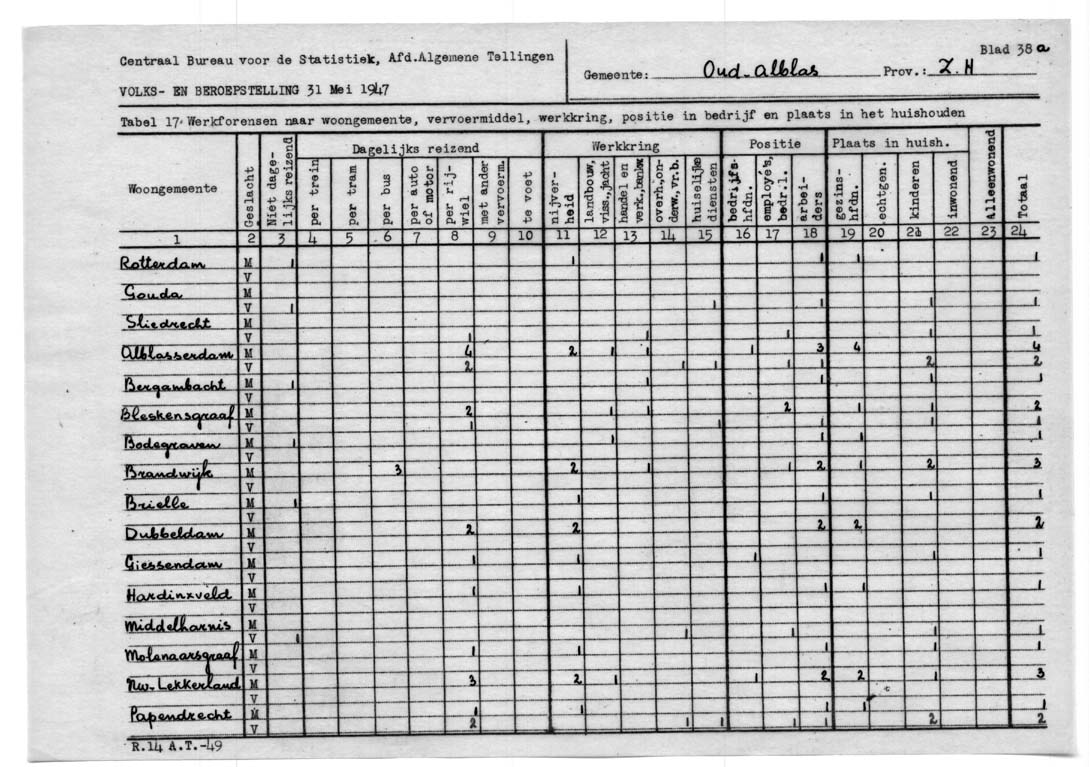 Centraal Bureau voor de Statistiek, Afd.Algemene Tellingen
VOLKS- EN BEROEPSTELLING 31 Mei 1947
Blad 38 a
Gemeente: Oud-Alblas Prov.: Z.H
Tabel 17. Werkforensen naar woongemeente, vervoermiddel, werkkring, positie in bedrijf en plaats in het huishouden
Woongemeente Geslacht Niet dage-lijks reizend Dagelijks reizend Werkkring Positie Plaats in huish. Alleenwonend Totaal
per trein per tram per bus per auto of motor per rij-wiel met ander vervoerm. te voet nijver-heid landbouw, viss., jacht handel en verk., bankw overh., on-derw., vr.b. huiselijke diensten bedrijfs-hfdn. employe's, bedr.l. arbei-ders gezins-hfdn. echtgen. kinderen inwonend
1 2 3 4 5 6 7 8 9 10 11 12 13 14 15 16 17 18 19 20 21 22 23 24
Rotterdam M 1 1 1 1 1
V
Gouda M
V 1 1 1 1 1
Sliedrecht M
V 1 1 1 1 1
Alblasserdam M 4 2 1 1 1 3 4 4
V 2 1 1 1 1 2 2
Bergambacht M 1 1 1 1 1
V
Bleskensgraaf M 2 1 1 2 1 1 2
V 1 1 1 1 1
Bodegraven M 1 1 1 1 1
V
Brandwijk M 3 2 1 1 2 1 2 3
V
Brielle M 1 1 1 1 1
V
Dubbeldam M 2 2 2 2 2
V
Giessendam M 1 1 1 1 1
V
Hardinxveld M 1 1 1 1 1
V
Middelharnis M
V 1 1 1 1 1
Molenaarsgraaf M 1 1 1 1 1
V
Nw.-Lekkerland M 3 2 1 1 2 2 1 3
V
Papendrecht M 1 1 1 1 1
V 2 1 1 1 1 2 2
R.14 A.T.-49